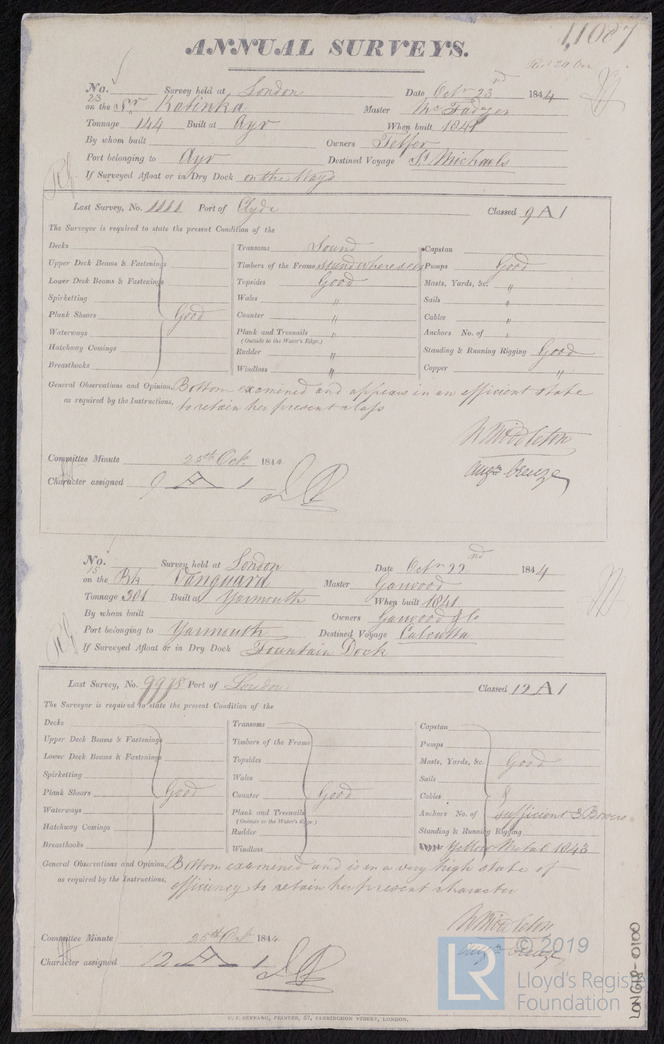 11087
ANNUAL SURVEYS.
No. 23 Survey held at London Date Octr 23rd 1844
on the Sr Katinka Master McFadyen
Tonnage 144 Built at Ayr When built 1841
By whom built Owners Telfer
Port belonging to Ayr Destined Voyage St Michaels
If Surveyed Afloat or in Dry Dock on the blocks
Last Survey, No. 1111 Port of Clyde Classed 9 A 1
The Surveyor is required to state the present Condition of the
Decks
Upper Deck Beams & Fastenings
Lower Deck Beams & Fastenings
Spirketting
Plank Shears Good
Waterways
Hatchway Comings
Breasthooks
Transoms Sound
Timbers of the Frame sound where seen
Topsides Good
Wales "
Counter "
Plank and Treenails "
(Outside to the Water's Edge.)
Rudder "
Windlass "
Capstan
Pumps Good
Masts, Yards, &c. "
Sails "
Cables "
Anchors No. of "
Standing & Running Rigging Good
Copper "
General Observations and Opinion, Bottom examined and appears in an efficient state
as required by the Instructions, to retain her present class
W Middleton
Augn Creuze
Committee Minute 25th Oct. 1844
Character assigned 9 A 1
No. 15 Survey held at London Date Octr 22nd 1844
on the Bk Vanguard Master Garwood
Tonnage 301 Built at Yarmouth When built 1841
By whom built Owners Garwood & Co
Port belonging to Yarmouth Destined Voyage Calcutta
If Surveyed Afloat or in Dry Dock Fountain Dock
Last Survey, No. 9978 Port of London Classed 12 A 1
The Surveyor is required to state the present Condition of the
Decks
Upper Deck Beams & Fastenings
Lower Deck Beams & Fastenings
Spirketting
Plank Shears Good
Waterways
Hatchway Comings
Breasthooks
Transoms
Timbers of the Frame
Topsides
Wales
Counter Good
Plank and Treenails
(Outside to the Water's Edge.)
Rudder
Windlass
Capstan
Pumps
Masts, Yards, &c. Good
Sails
Cables &
Anchors No. of sufficient 3 Bowers
Standing & Running Rigging
Yellow Metal 1843
General Observations and Opinion, Bottom examined and is in a very high state of
as required by the Instructions, efficiency to retain her present character
W Middleton
Augn Creuze
Committee Minute 25th Oct 1844
Character assigned 12 A 1
LR © 2019
Lloyd's Register
Foundation
LON618-0100